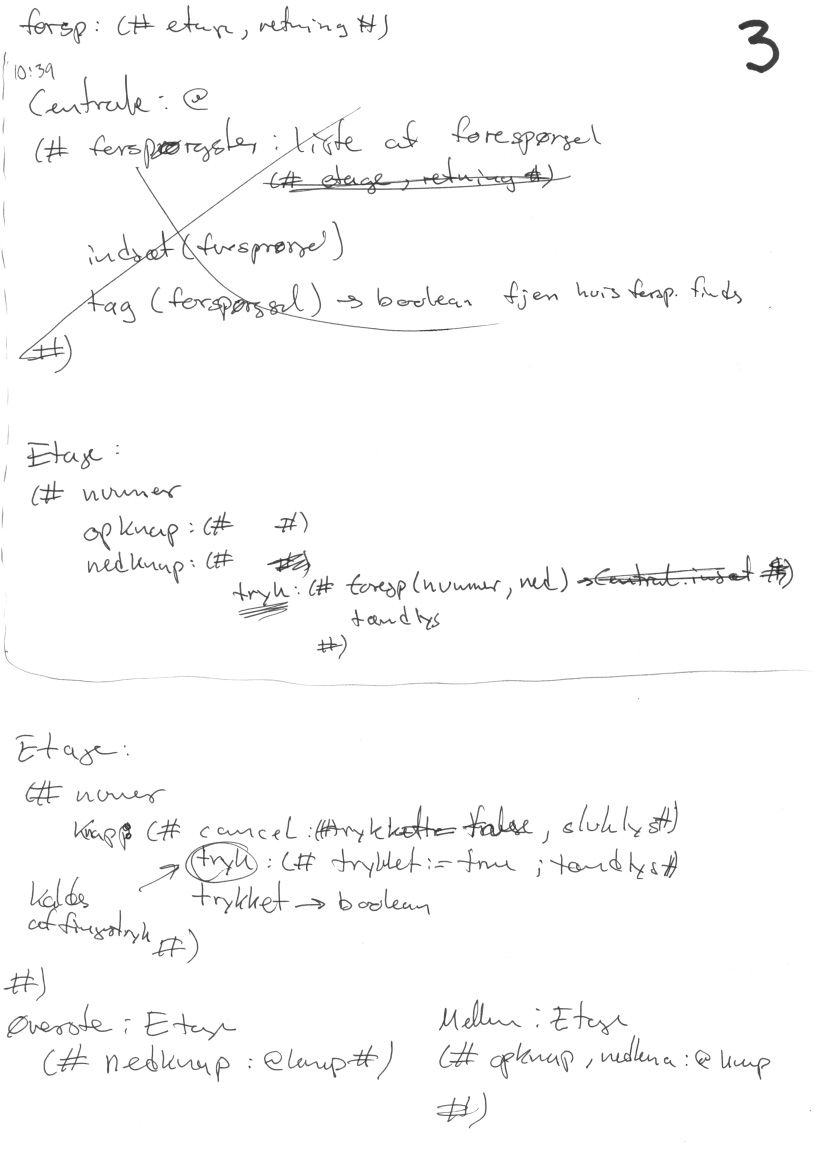 forsp: (# etage, retning #)
3
10:39
Centrale: @
(# : liste af forespørgsel
(# etage, retning #)
indsæt (forespørgsel)
tag (forspørgsel) → boolean fjern hvis forsp. finds
#)
Etage:
(# nummer
opknap: (# #)
nedknap: (# #)
tryk: (# foresp(nummer, ned) → Central.indsæt #)
tændlys
#)
Etage:
(# nummer
Knap: (# cancel: (# trykket:= false, sluklys #)
tryk: (# trykket:= true ; tændlys #
trykket → boolean
Kaldes
af fingertryk
#)
#)
Øverste: Etage
(# nedknap: @knap #)
Mellem: Etage
(# opknap, nedkna: @knap
#)